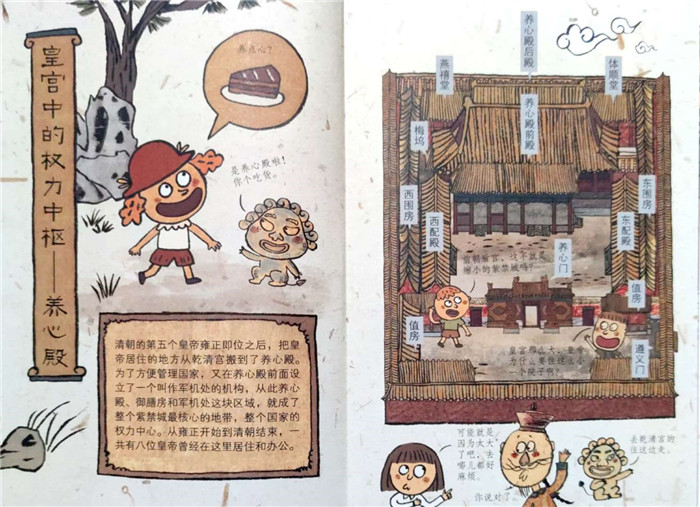 皇宫中的权力中枢——养心殿
养点心？
是养心殿啦！
你个吃货。
清朝的第五个皇帝雍正即位之后，把皇
帝居住的地方从乾清宫搬到了养心殿。
为了方便管理国家，又在养心殿前面设
立了一个叫作军机处的机构，从此养心
殿、御膳房和军机处这块区域，就成了
整个紫禁城最核心的地带，整个国家的
权力中心。从雍正开始到清朝结束，一
共有八位皇帝曾经在这里居住和办公。
燕禧堂
养心殿后殿
体顺堂
养心殿前殿
梅坞
西围房
西配殿
东围房
东配殿
养心门
前朝后宫，这不就是
缩小的紫禁城吗？
值房
值房
遵义门
皇宫那么大，皇帝
为什么要住这么小
一个院子啊？
可能就是
因为太大
了吧，去
哪儿都好
麻烦。
你说对了。
去乾清宫的
往这边走。